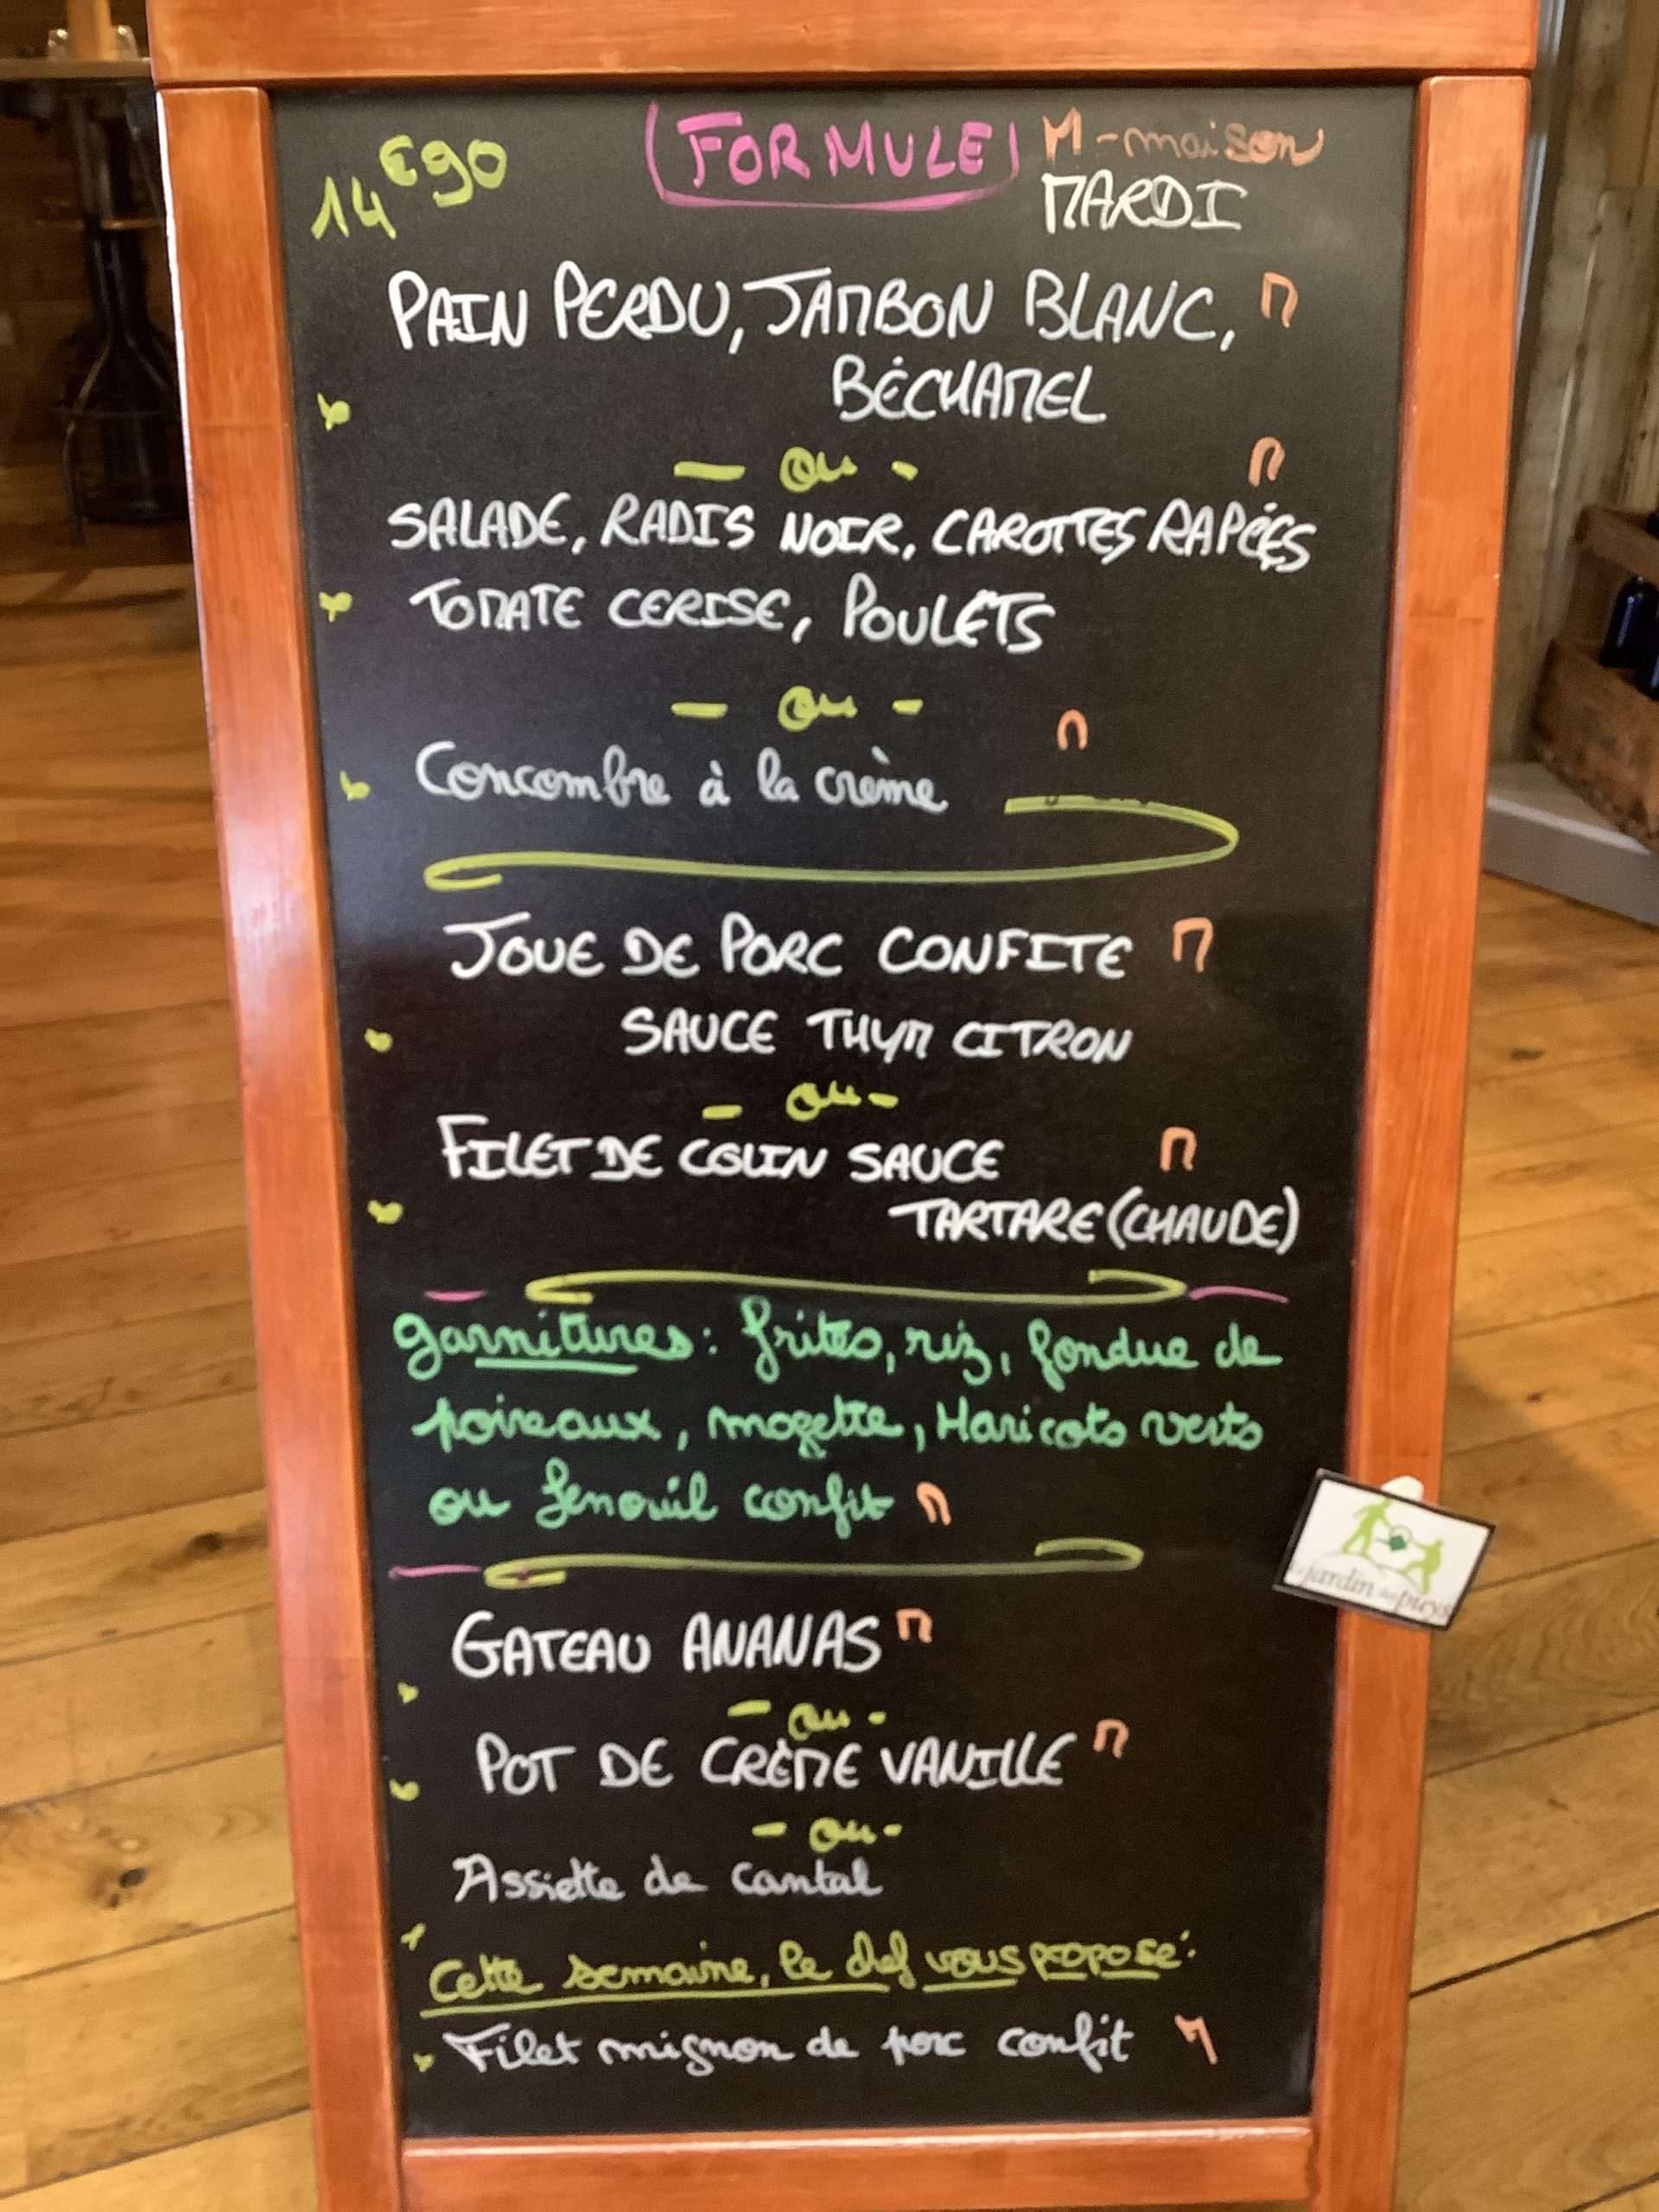 14€90 FORMULE M - maison
MARDI
PAIN PERDU, JAMBON BLANC, M
BÉCHAMEL
- ou - M
SALADE, RADIS NOIR, CAROTTES RAPÉES
TOMATE CERISE, POULETS
- ou -
Concombre à la crème M
JOUE DE PORC CONFITE M
SAUCE THYM CITRON
- ou -
FILET DE COLIN SAUCE M
TARTARE (CHAUDE)
garnitures : frites, riz, fondue de
poireaux, mogette, Haricots verts
ou fenouil confit M
GATEAU ANANAS M
- ou -
POT DE CRÈME VANILLE M
- ou -
Assiette de cantal
Cette semaine, le chef vous propose :
Filet mignon de porc confit M
Le jardin des puys